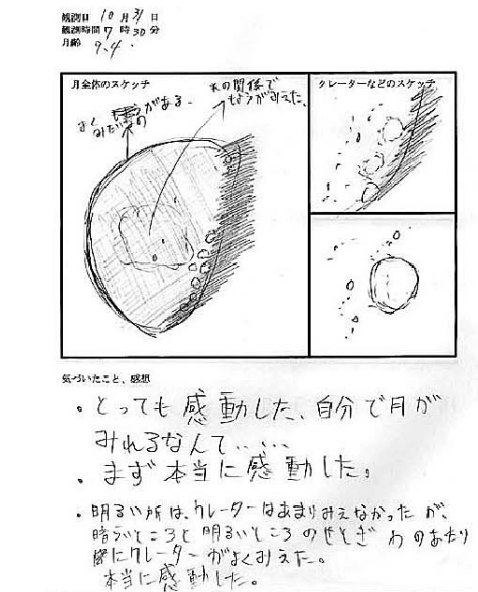 観測日 10月31日
観測時間 7時30分
月齢 9.4.
月全体のスケッチ
がある。
よく
光の関係で
もようがみえた、
クレーターなどのスケッチ
気づいたこと、感想
。とっても感動した、自分で月が
みれるなんて、、、、
。まず本当に感動した。
。明るい所は、クレーターはあまりみえなかったが、
暗いところと明るいところのせとぎわのあたり
にクレーターがよくみえた。
本当に感動した。